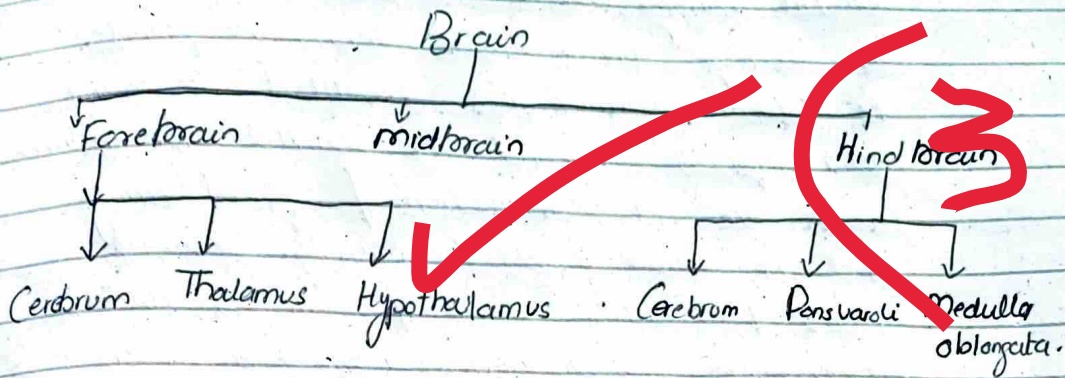 Brain
Forebrain midbrain Hind brain
Cerebrum Thalamus Hypothalamus . Cerebrum Ponsvaroli Medulla
oblongata.
3